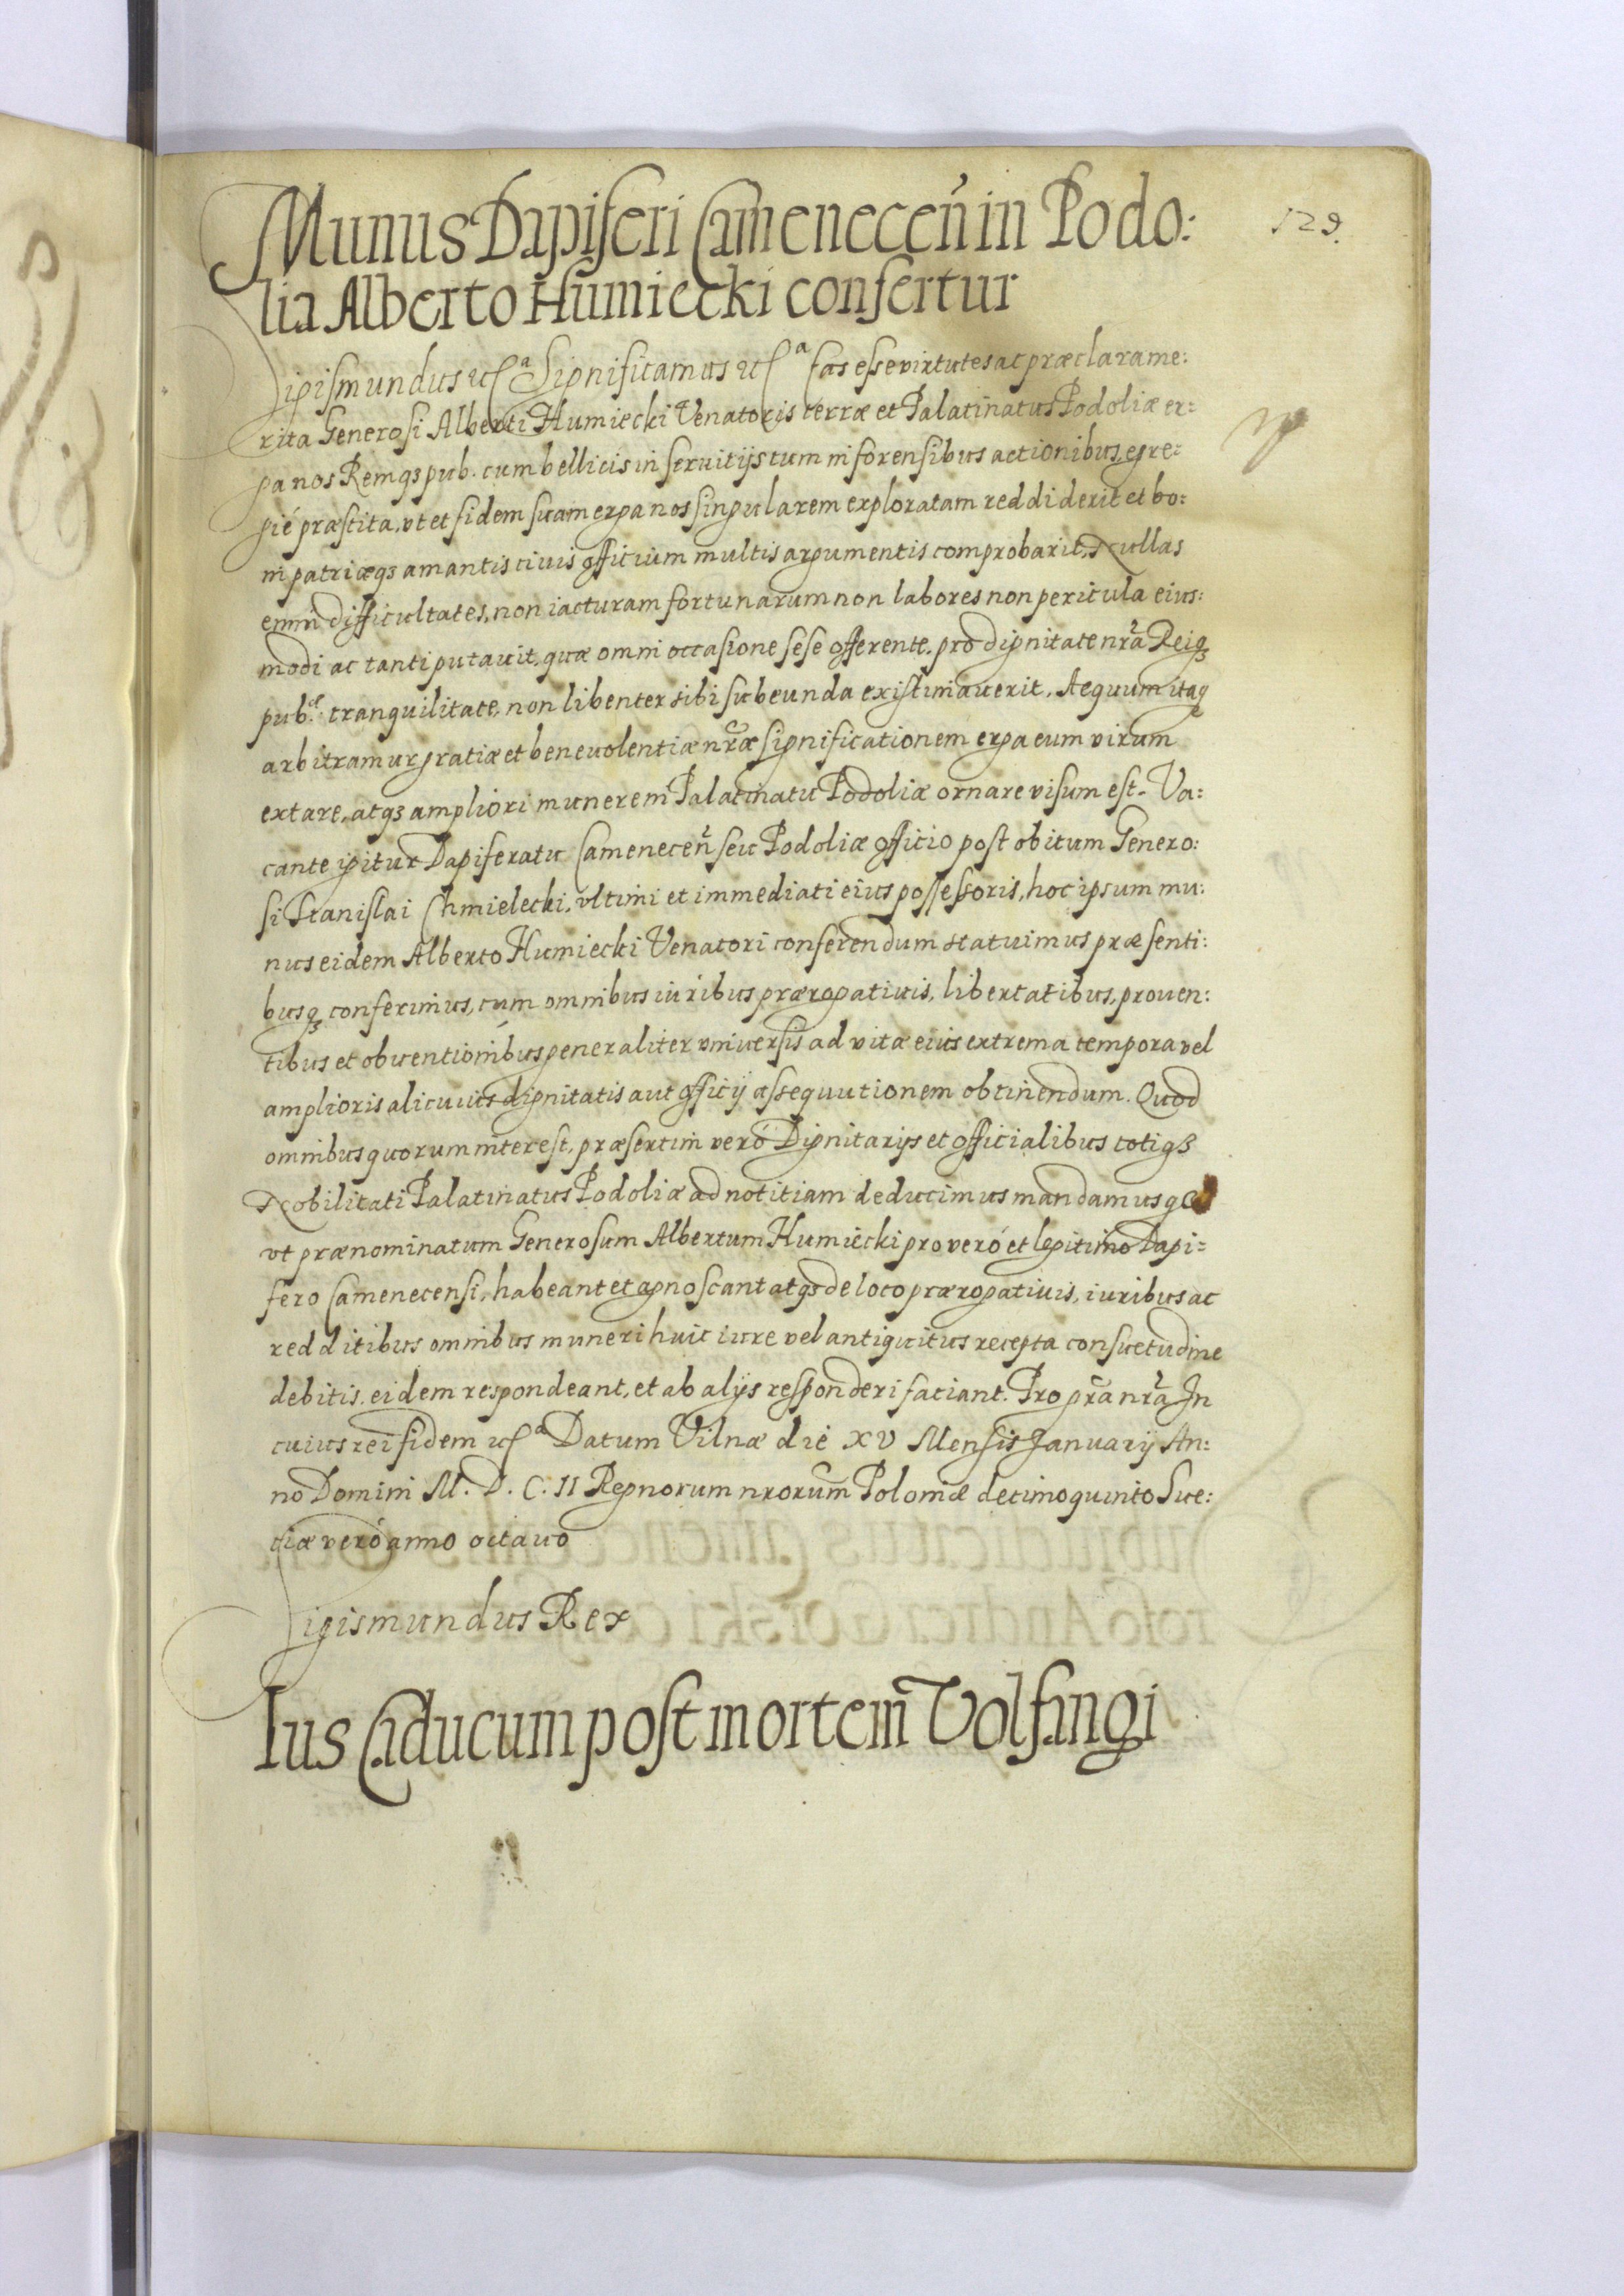 129.
Munus Dapiferi Camenecen̄ in Podo:
lia Alberto Humiecki confertur
Sigismundus etc̃ᵃ Significamus etc̃ᵃ Eas esse virtutes ac præclara me:
rita Generosi Alberti Humiecki Venatoris terræ et Palatinatus Podoliæ er:
ga nos Remq3 pub. cum bellicis in seruitijs tum in forensibus actionibus, egre:
gié præstita, vt et fidem suam erga nos singularem exploratam reddiderit et bo:
ni patriæq3 amantis ciuis officium multis argumentis comprobarit, Nullas
enim difficultates, non iacturam fortunarum non labores non pericula eius:
modi ac tanti putauit, quæ omni occasione sese offerente, pro dignitate nr̃a Reiq3
pub.ᵉ tranquilitate, non libenter sibi subeunda existimauerit. Aequum itaq3
arbitramur gratiæ et beneuolentiæ nr̃æ significationem erga eum virum
extare, atq3 ampliori munere in Palatinatu Podoliæ ornare visum est. Va:
cante igitur Dapiferatu Camenecen̄ seu Podoliæ officio post obitum Genero:
si Stanislai Chmielecki, vltimi et immediati eius possessoris, hoc ipsum mu:
nus eidem Alberto Humiecki Venatori conferendum statuimus præsenti:
busq3 conferimus, cum omnibus iuribus prærogatiuis, libertatibus, prouen:
tibus et obuentionibus generaliter vniuersis ad vitæ eius extrema tempora vel
amplioris alicuius dignitatis aut officij assequutionem obtinendum. Quod
omnibus quorum interest, præsertim veró Dignitarijs et officialibus totiq3
Nobilitati Palatinatus Podoliæ ad notitiam deducimus mandamusq3
vt prænominatum Generosum Albertum Humiecki pro veró et legitimo Dapi=
fero Camenecensi, habeant et agnoscant atq3 de loco prærogatiuis, iuribus ac
redditibus omnibus muneri huic iure vel antiquitus recepta consuetudine
debitis, eidem respondeant, et ab alijs responderi faciant. Pro gr̃a nr̃a In
cuius rei fidem etc̃ᵃ Datum Vilnæ die XV Mensis Januarij An:
no Domini M. D. C. II Regnorum nrorum̃ Poloniæ decimoquinto Sue:
tiæ veró anno octauo
Sigismundus Rex
Ius Caducum post mortem Volfangi